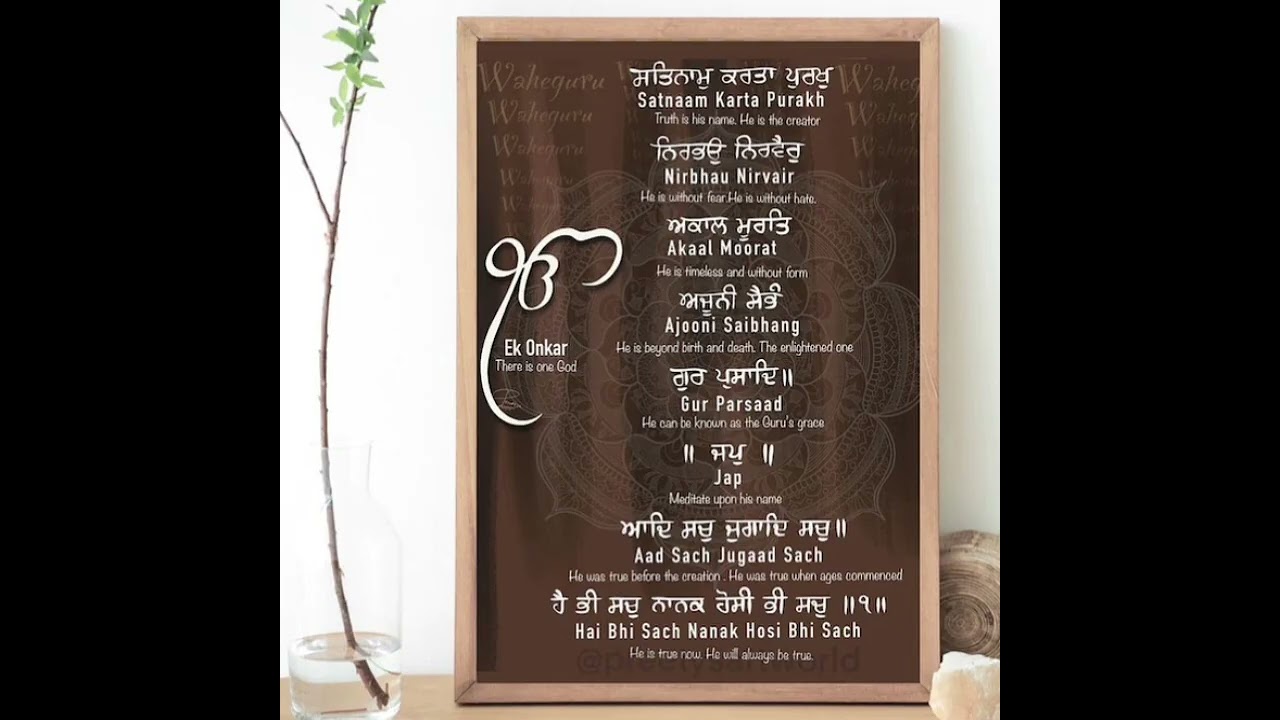 Waheguru Waheguru
Waheguru Waheguru
Waheguru
Waheguru
Waheguru
ੴ
Ek Onkar
There is one God
ਸਤਿਨਾਮੁ ਕਰਤਾ ਪੁਰਖੁ
Satnaam Karta Purakh
Truth is his name. He is the creator
ਨਿਰਭਉ ਨਿਰਵੈਰੁ
Nirbhau Nirvair
He is without fear.He is without hate.
ਅਕਾਲ ਮੂਰਤਿ
Akaal Moorat
He is timeless and without form
ਅਜੂਨੀ ਸੈਭੰ
Ajooni Saibhang
He is beyond birth and death. The enlightened one
ਗੁਰ ਪ੍ਰਸਾਦਿ॥
Gur Parsaad
He can be known as the Guru's grace
॥ ਜਪੁ ॥
Jap
Meditate upon his name
ਆਦਿ ਸਚੁ ਜੁਗਾਦਿ ਸਚੁ॥
Aad Sach Jugaad Sach
He was true before the creation . He was true when ages commenced
ਹੈ ਭੀ ਸਚੁ ਨਾਨਕ ਹੋਸੀ ਭੀ ਸਚੁ ॥੧॥
Hai Bhi Sach Nanak Hosi Bhi Sach
He is true now. He will always be true.